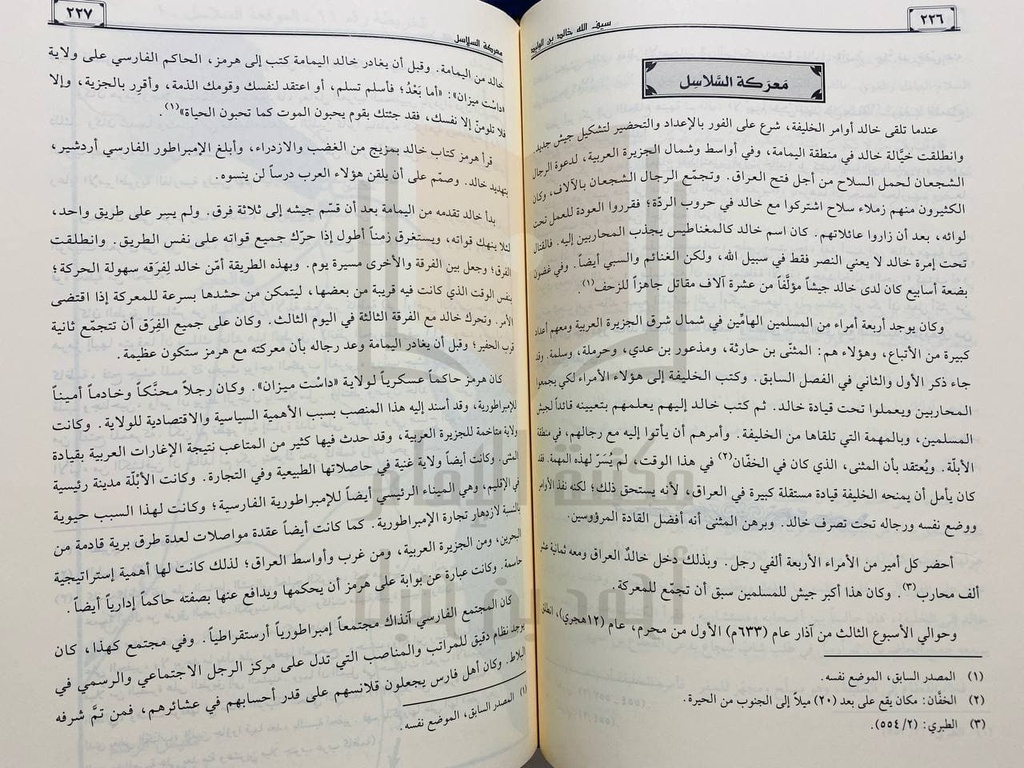 ٢٢٦
سيف الله خالد بن الوليد
مَعرَكة السَّلاسِل
عندما تلقى خالد أوامر الخليفة، شرع على الفور بالإعداد والتحضير لتشكيل جيش جديد.
وانطلقت خيَّالة خالد في منطقة اليمامة، وفي أواسط وشمال الجزيرة العربية، لدعوة الرجال
الشجعان لحمل السلاح من أجل فتح العراق. وتجمّع الرجال الشجعان بالآلاف، وكان
الكثيرون منهم زملاء سلاح اشتركوا مع خالد في حروب الردّة؛ فقرروا العودة للعمل تحت
لوائه، بعد أن زاروا عائلاتهم. كان اسم خالد كالمغناطيس يجذب المحاربين إليه. فالقتال
تحت إمرة خالد لا يعني النصر فقط في سبيل الله، ولكن الغنائم والسبي أيضاً. وفي غضون
بضعة أسابيع كان لدى خالد جيشاً مؤلَّفاً من عشرة آلاف مقاتل جاهزاً للزحف(١).
وكان يوجد أربعة أمراء من المسلمين الهامِّين في شمال شرق الجزيرة العربية ومعهم أعداد
كبيرة من الأتباع، وهؤلاء هم: المثنّى بن حارثة، ومذعور بن عدي، وحرملة، وسلمة. وقد
جاء ذكر الأول والثاني في الفصل السابق. وكتب الخليفة إلى هؤلاء الأمراء لكي يجمعوا
المحاربين ويعملوا تحت قيادة خالد. ثم كتب خالد إليهم يعلمهم بتعيينه قائداً لجيش
المسلمين، وبالمهمة التي تلقاها من الخليفة. وأمرهم أن يأتوا إليه مع رجالهم، في منطقة
الأبلّة. ويُعتقد بأن المثنى، الذي كان في الخفّان(٢) في هذا الوقت، لم يُسَرّ لهذه المهمة. فقد
كان يأمل أن يمنحه الخليفة قيادة مستقلة كبيرة في العراق، لأنه يستحق ذلك؛ لكنه نفذ الأوامر
ووضع نفسه ورجاله تحت تصرف خالد. وبرهن المثنى أنه أفضل القادة المرؤوسين.
أحضر كل أمير من الأمراء الأربعة ألفي رجل. وبذلك دخل خالدٌ العراق ومعه ثمانية عشر
ألف محارب(٣). وكان هذا أكبر جيش للمسلمين سبق أن تجمّع للمعركة.
وحوالي الأسبوع الثالث من آذار عام (٦٣٣م) الأول من محرم، عام (١٢هجري)، انطلق
(١) المصدر السابق، الموضع نفسه.
(٢) الخفّان: مكان يقع على بعد (٢٠) ميلاً إلى الجنوب من الحيرة.
(٣) الطبري: (٢/ ٥٥٤).
معركة السلاسل
٢٢٧
خالد من اليمامة. وقبل أن يغادر خالد اليمامة كتب إلى هرمز، الحاكم الفارسي على ولاية
«داشت ميزان»: «أما بَعْدُ؛ فأسلم تسلم، أو اعتقد لنفسك وقومك الذمة، وأقرر بالجزية، وإلا
فلا تلومنّ إلا نفسك، فقد جئتك بقوم يحبون الموت كما تحبون الحياة»(١).
قرأ هرمز كتاب خالد بمزيج من الغضب والازدراء، وأبلغ الإمبراطور الفارسي أردشير،
بتهديد خالد. وصمّم على أن يلقن هؤلاء العرب درساً لن ينسوه.
بدأ خالد تقدمه من اليمامة بعد أن قسّم جيشه إلى ثلاثة فرق. ولم يسِر على طريق واحد،
لئلا ينهك قواته، ويستغرق زمناً أطول إذا حرّك جميع قواته على نفس الطريق. وانطلقت
الفرق؛ وجعل بين الفرقة والأخرى مسيرة يوم. وبهذه الطريقة أمّن خالد لِفِرَقه سهولة الحركة؛
بنفس الوقت الذي كانت فيه قريبة من بعضها، ليتمكن من حشدها بسرعة للمعركة إذا اقتضى
الأمر. وتحرك خالد مع الفرقة الثالثة في اليوم الثالث. وكان على جميع الفِرَق أن تتجمّع ثانية
قرب الحفير؛ وقبل أن يغادر اليمامة وعد رجاله بأن معركته مع هرمز ستكون عظيمة.
كان هرمز حاكماً عسكرياً لولاية «داشت ميزان». وكان رجلاً محنَّكاً وخادماً أميناً
للإمبراطورية، وقد أسند إليه هذا المنصب بسبب الأهمية السياسية والاقتصادية للولاية. وكانت
ولاية متاخمة للجزيرة العربية، وقد حدث فيها كثير من المتاعب نتيجة الإغارات العربية بقيادة
المثنى. وكانت أيضاً ولاية غنية في حاصلاتها الطبيعية وفي التجارة. وكانت الأبُلّة مدينة رئيسية
في الإقليم، وهي الميناء الرئيسي أيضاً للإمبراطورية الفارسية؛ وكانت لهذا السبب حيوية
بالنسبة لازدهار تجارة الإمبراطورية. كما كانت أيضاً عقدة مواصلات لعدة طرق برية قادمة من
البحرين، ومن الجزيرة العربية، ومن غرب وأواسط العراق؛ لذلك كانت لها أهمية إستراتيجية
حاسمة. وكانت عبارة عن بوابة على هرمز أن يحكمها ويدافع عنها بصفته حاكماً إدارياً أيضاً.
كان المجتمع الفارسي آنذاك مجتمعاً إمبراطورياً أرستقراطياً. وفي مجتمع كهذا، كان
يوجد نظام دقيق للمراتب والمناصب التي تدل على مركز الرجل الاجتماعي والرسمي في
البلاط. وكان أهل فارس يجعلون قلانسهم على قدر أحسابهم في عشائرهم، فمن تمَّ شرفه
(١) المصدر السابق، الموضع نفسه.